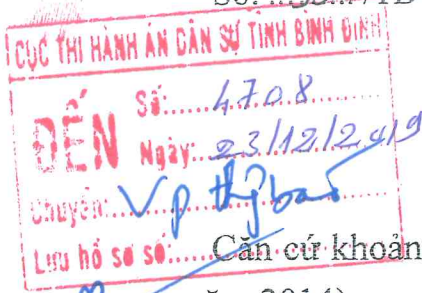 Số:
CỤC THI HÀNH ÁN DÂN SỰ TỈNH BÌNH ĐỊNH
ĐẾN
Số: 4708
Ngày: 23/12/2019
Chuyển: VP
Lưu hồ sơ số:
Căn cứ khoản
năm 2014)